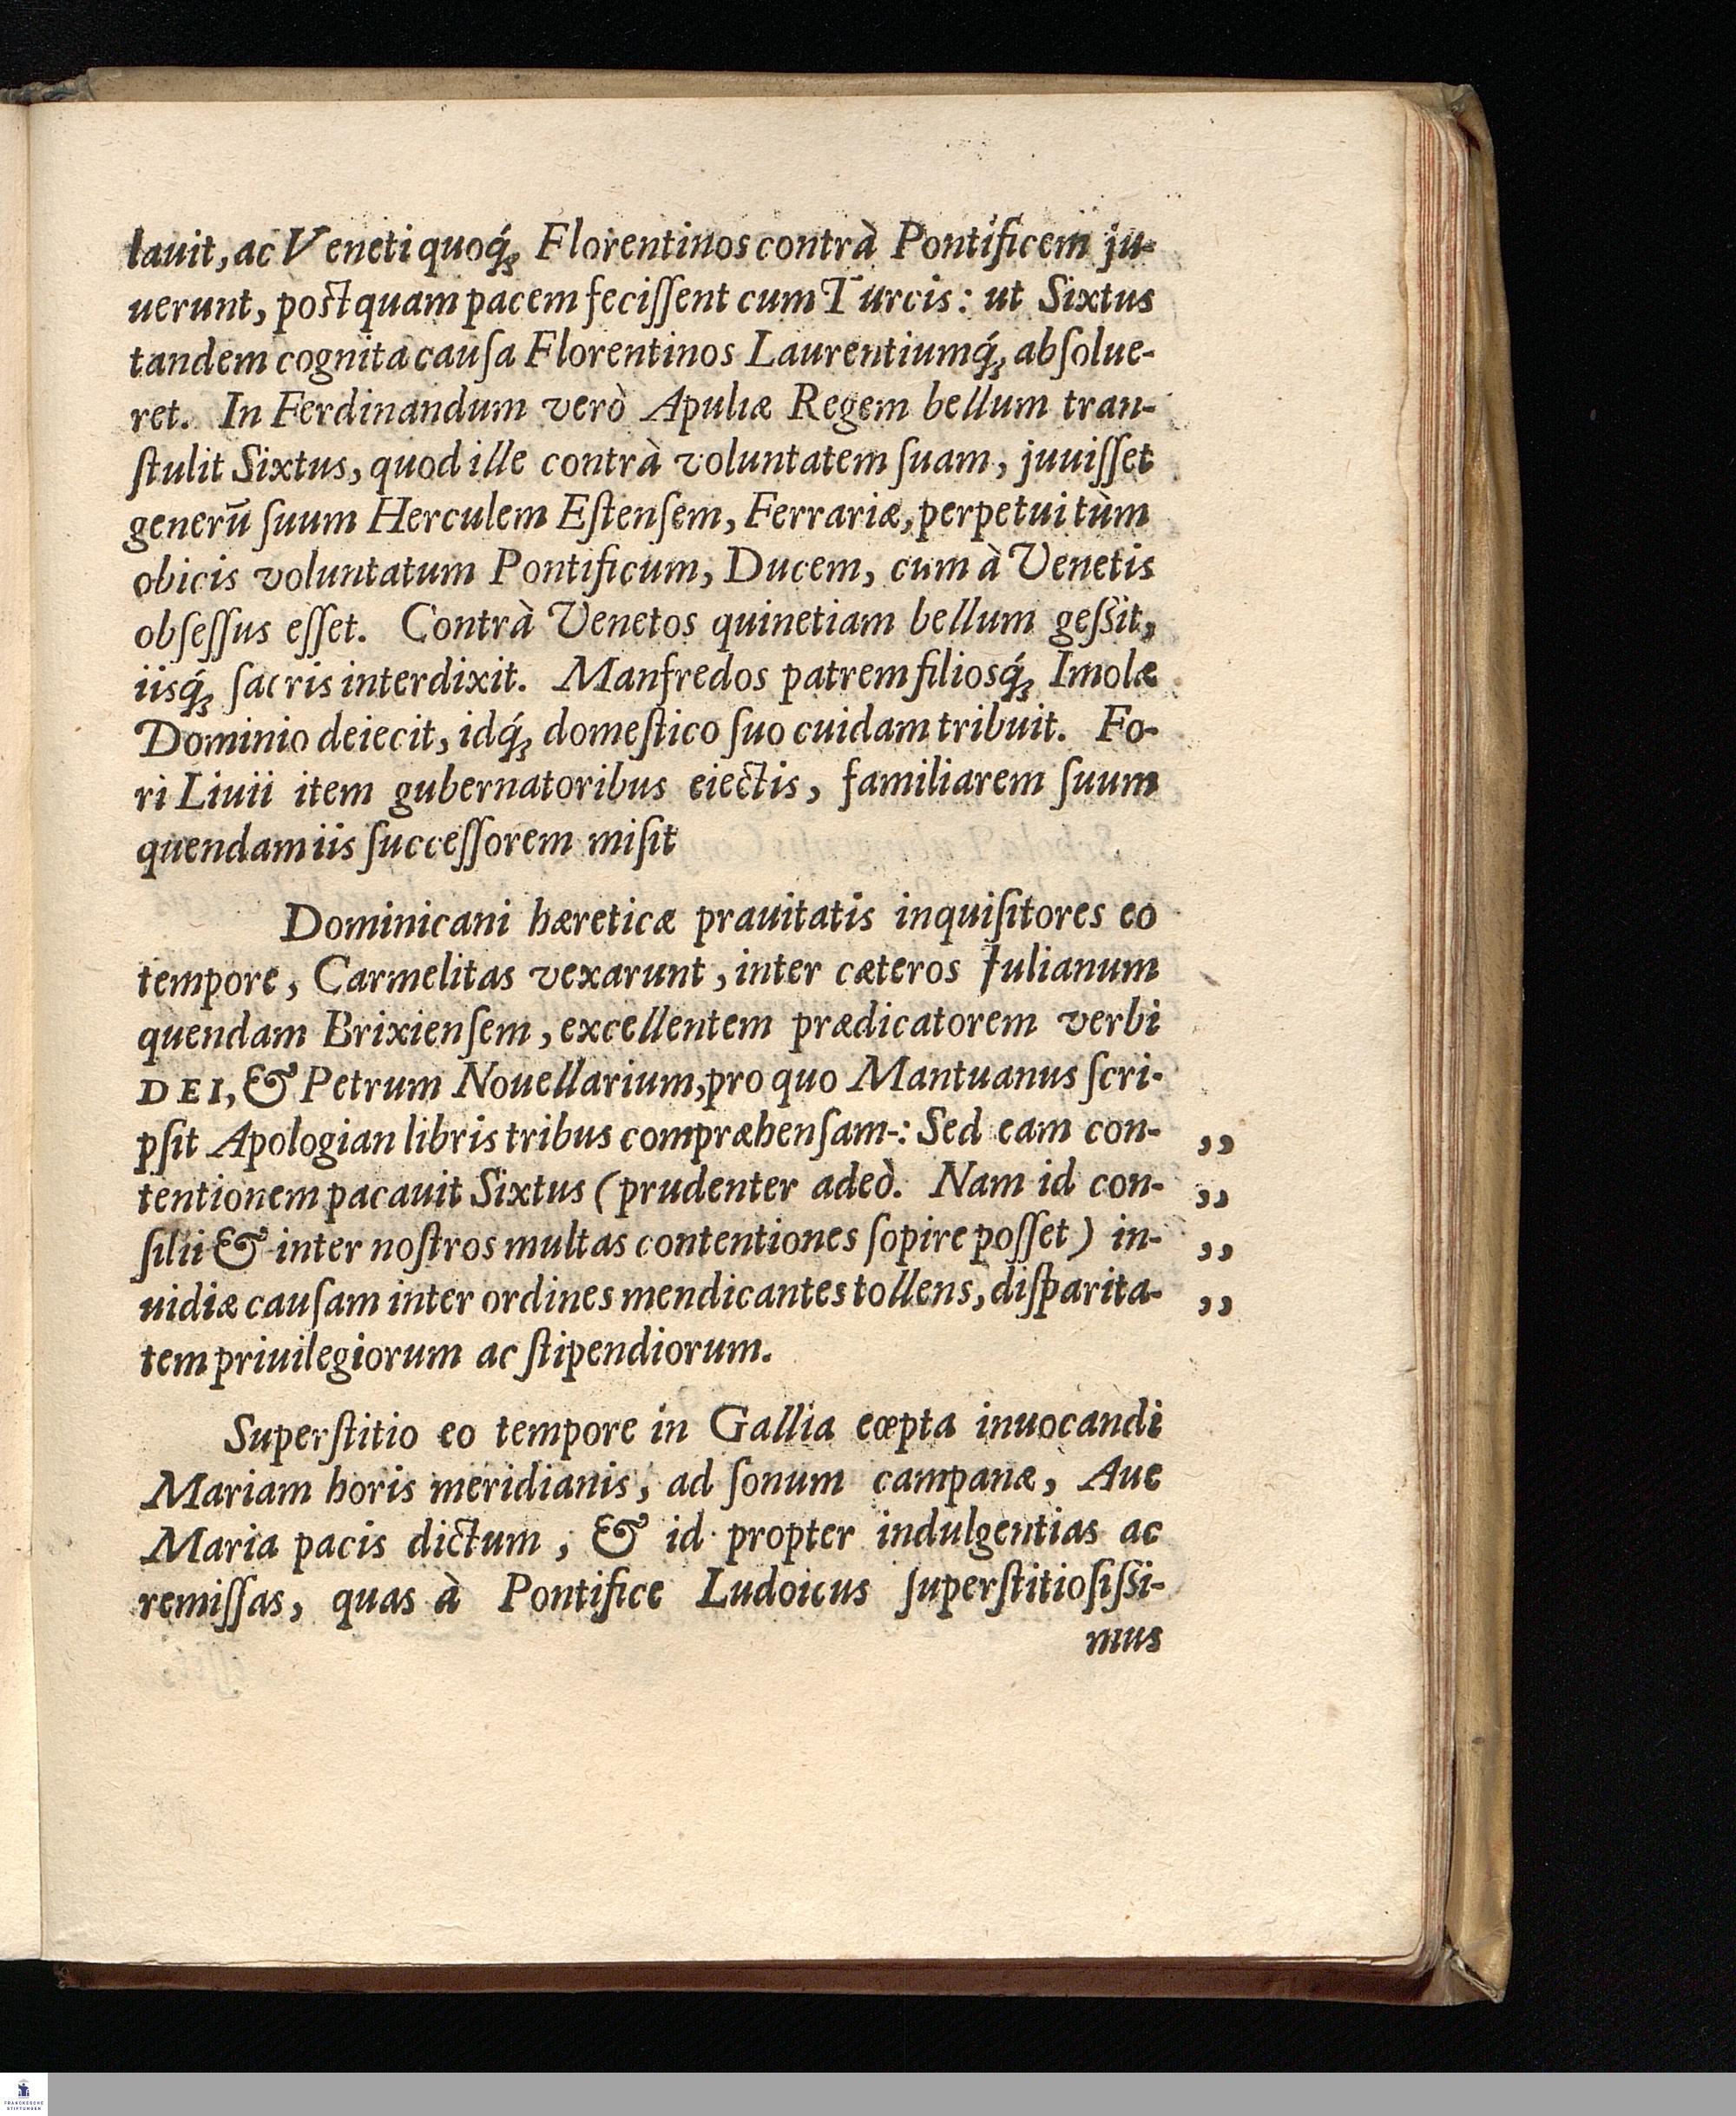 lauit, ac Veneti quoq́ꝫ Florentinos contrà Pontificem ju-
uerunt, postquam pacem feciſſent cum Turcis: ut Sixtus
tandem cognita cauſa Florentinos Laurentiumq́ꝫ abſolue-
ret. In Ferdinandum verò Apuliæ Regem bellum tran-
ſtulit Sixtus, quod ille contrà voluntatem ſuam, juuiſſet
generū ſuum Herculem Eſtenſem, Ferrariæ, perpetui tùm
obicis voluntatum Pontificum, Ducem, cum à Venetis
obſeſſus eſſet. Contrà Venetos quinetiam bellum geſſit,
iisq́ꝫ ſacris interdixit. Manfredos patrem filiosq́ꝫ Imolæ
Dominio deiecit, idq́ꝫ domeſtico ſuo cuidam tribuit. Fo-
ri Liuii item gubernatoribus eiectis, familiarem ſuum
quendam iis ſucceſſorem miſit
Dominicani hæreticæ prauitatis inquiſitores eo
tempore, Carmelitas vexarunt, inter cæteros Iulianum
quendam Brixienſem, excellentem prædicatorem verbi
DEI, & Petrum Nouellarium, pro quo Mantuanus ſcri-
pſit Apologian libris tribus compræhenſam-: Sed eam con- ,,
tentionem pacauit Sixtus (prudenter adeò. Nam id con- ,,
ſilii & inter noſtros multas contentiones ſopire poſſet) in- ,,
uidiæ cauſam inter ordines mendicantes tollens, diſparita- ,,
tem priuilegiorum ac ſtipendiorum.
Superſtitio eo tempore in Gallia cœpta inuocandi
Mariam horis meridianis, ad ſonum campanæ, Aue
Maria pacis dictum, & id propter indulgentias ac
remiſſas, quas à Pontifice Ludoicus ſuperſtitioſiſſi-
mus
FRANCKESCHE
STIFTUNGEN